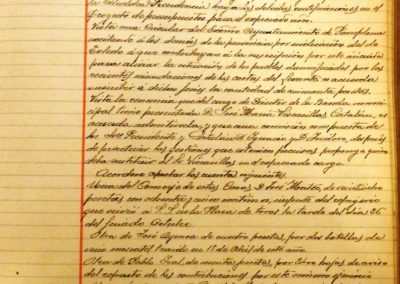 la
proyecto de presupuestos para el expresado año.
Vista una Circular del Excmo Ayuntamiento de Pamplona
excitando á los demás de la provincia, por indicación del de
Toledo á que contribuyan á la suscripción por este iniciada
para aliviar la situación de los pueblos damnificados por las
recientes inundaciones de las costas del Levante se acuerda
suscribir á dichos fines la cantidad de cincuenta pesetas.
Vista la renuncia que del cargo de Director de la Banda muni
cipal tiene presentada D. José María Viscasillas Catalán, se
acuerda admitírsela, y que una comisión compuesta de
los Sres. Presidente, y después
de practicar las gestiones que estimen precisas proponga quien
deba sustituir al Sr. Viscasillas en el expresado cargo.
Acordose aprobar las cuentas siguientes.
Una del Conserje de estas Casas D. José de veintiocho
pesetas con ochenta y cinco céntimos, importe del refrigerio
que sirvió á S.S. en la Plaza de toros la tarde del día 26
del finado Octubre.
Otra de José de cuatro pesetas, por dos botellas de
vino moscatel en 17 de Abril de este año.
Otra de Pablo de pesetas, por 2400 hojas de aviso
del reparto de las contribuciones por este mismo ejercicio